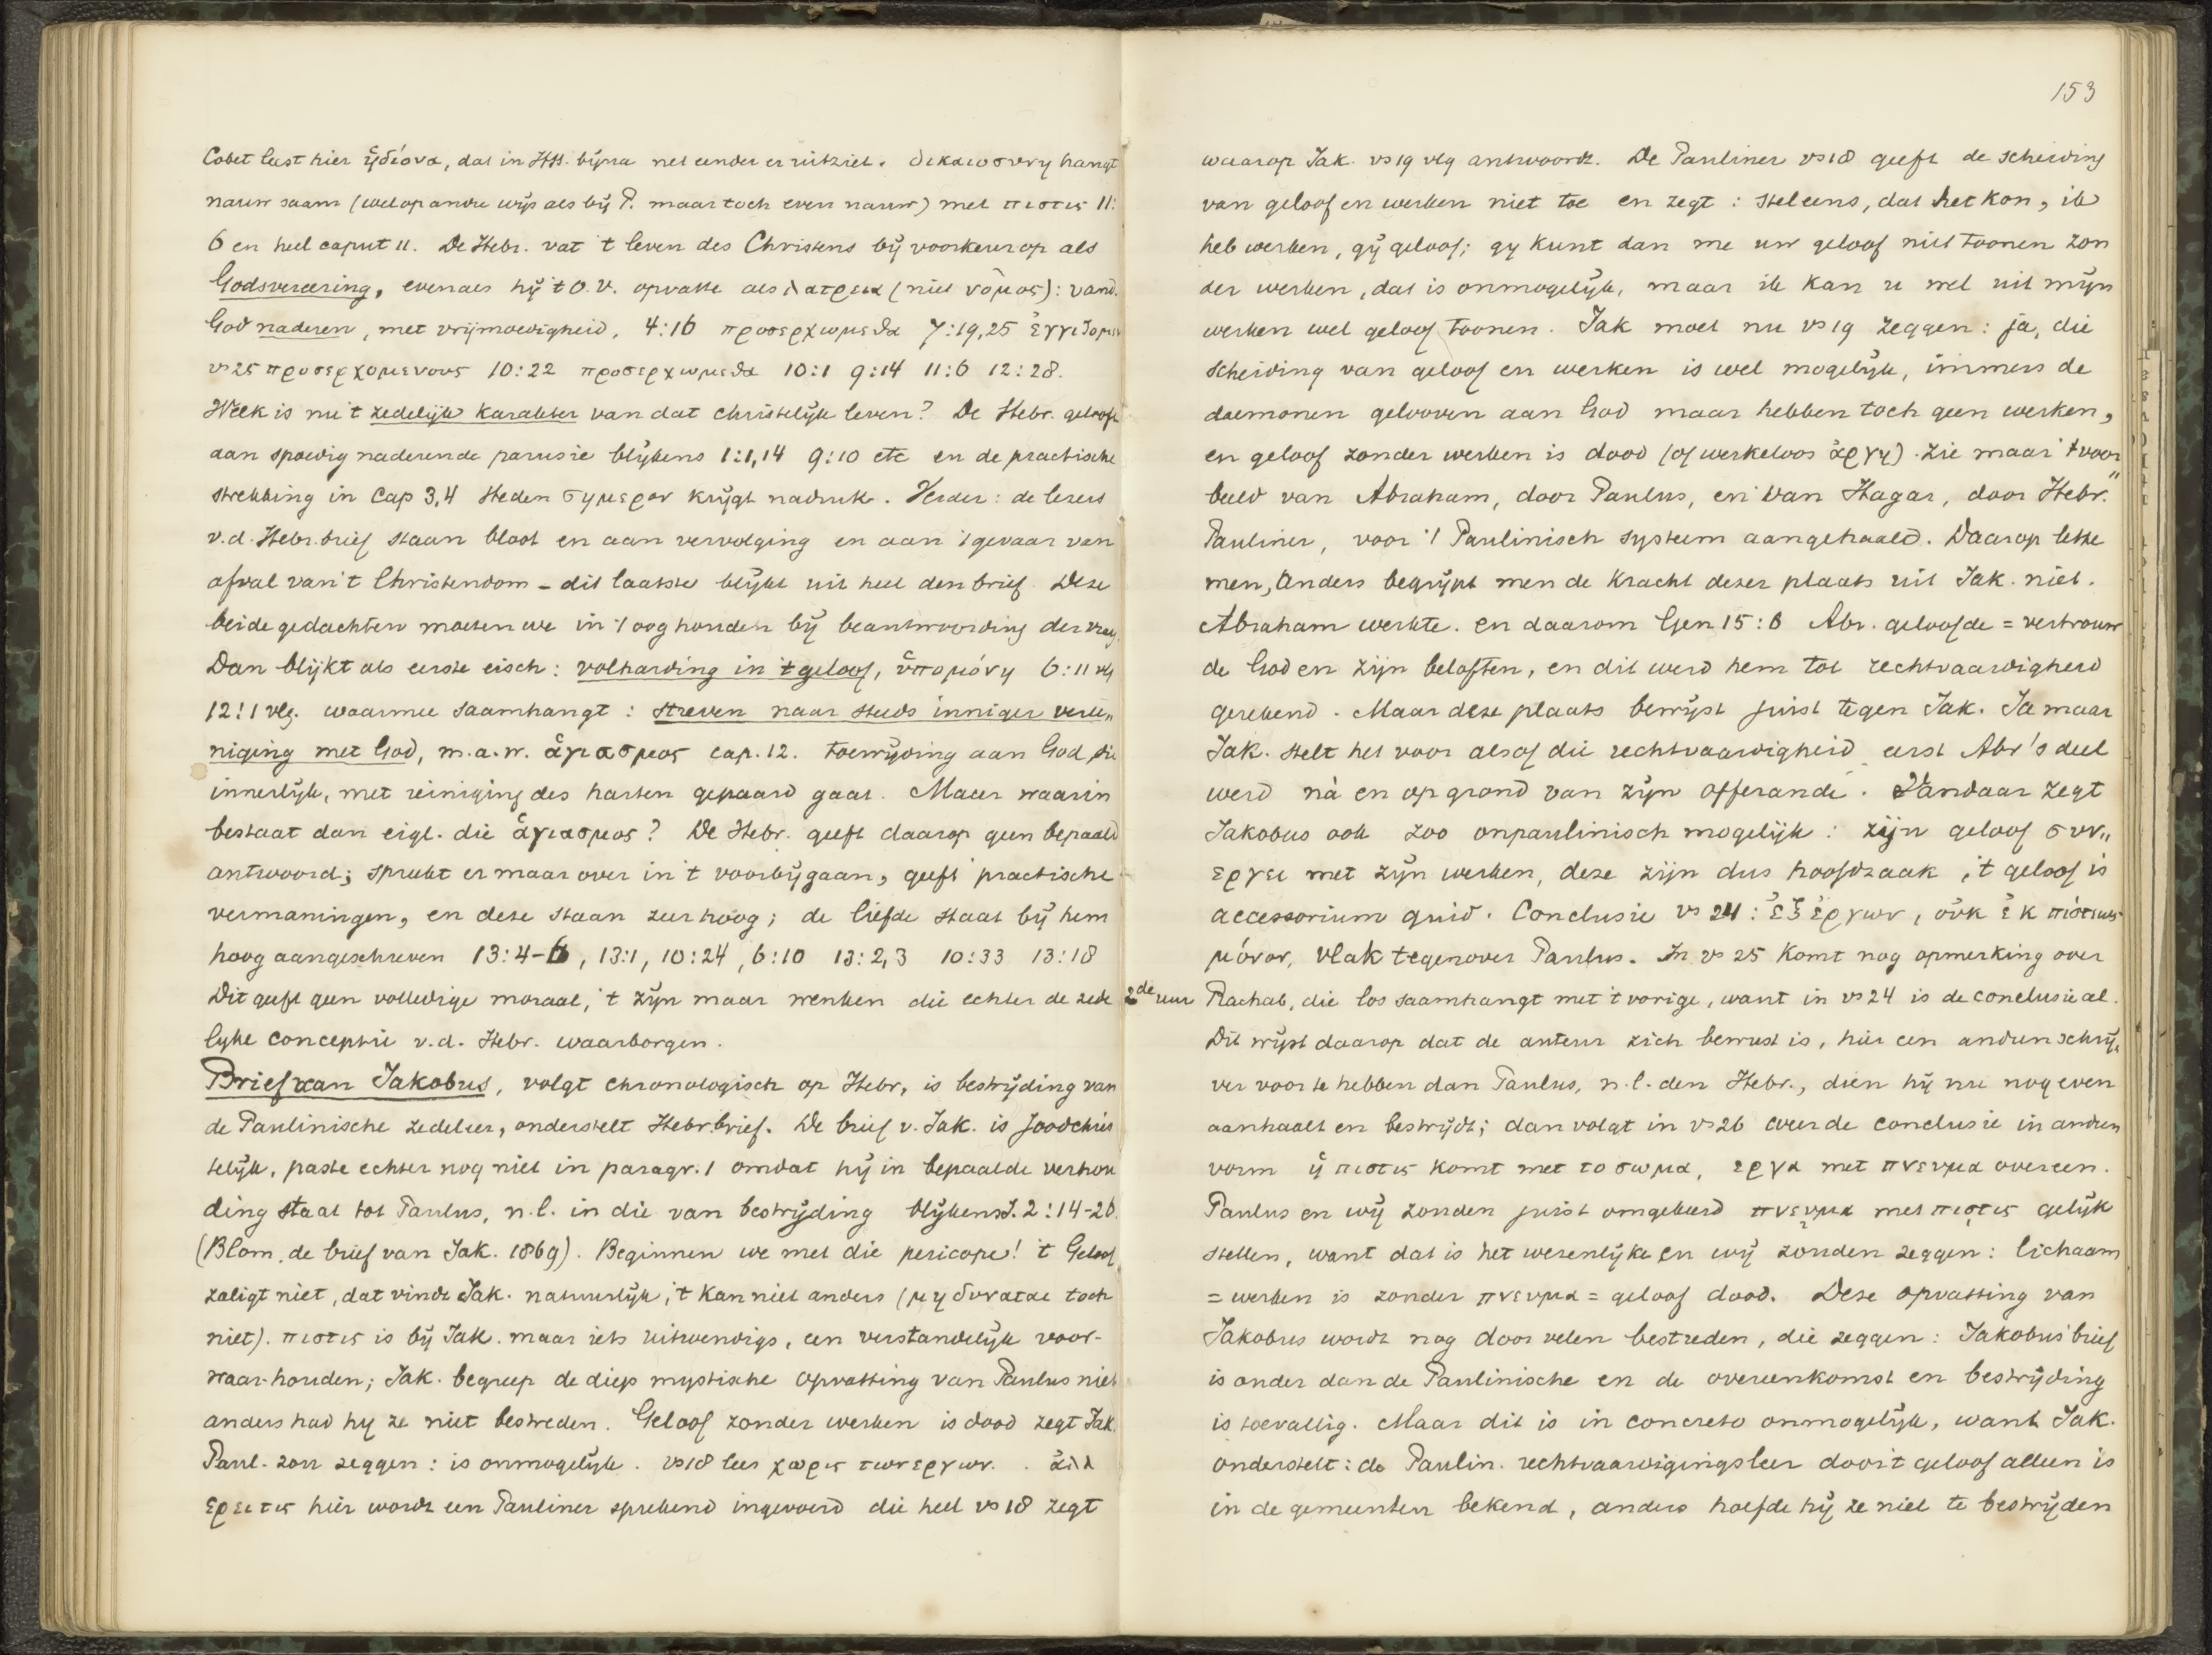 Cobet leest hier ἡδίονα, dat in HSS. bijna net eender er uitziet. δικαιοσυνη hangt
nauw saam (wel op andre wijs als bij P. maar toch even nauw) met πιστις 11:
6 en heel caput 11. De Hebr. vat 't leven des Christens bij voorkeur op als
Godsvereering, evenals hij 't O.V. opvatte als λατρεια (niet νόμος): vand.
God naderen, met vrijmoedigheid, 4:16 προσερχωμεθα 7:19,25 ἐγγιζομεν
vs 25 προσερχομενους 10:22 προσερχωμεθα 10:1 9:14 11:6 12:28.
Welk is nu 't zedelijk karakter van dat christelijk leven? De Hebr. gelooft
aan spoedig naderende parusie blijkens 1:1,14 9:10 etc en de practische
strekking in Cap 3,4 σημερον krijgt nadruk. Verder: de lezers
v.d. Hebr. brief staan bloot en aan vervolging en aan 't gevaar van
afval van 't Christendom - dit laatste blijkt uit heel den brief. Deze
beide gedachten moeten we in 't oog houden bij beantwoording der vraag,
Dan blijkt als eerste eisch: volharding in 't geloof, ὑπομόνη 6:11 vlg
12:1 vlg. waarmee saamhangt: streven naar steeds inniger vere„
niging met God, m.a.w. ἁγιασμος cap. 12. toewijding aan God, die
innerlijk, met reiniging des harten gepaard gaat. Maar waarin
bestaat dan eigl. die ἁγιασμος? De Hebr. geeft daarop geen bepaald
antwoord; spreekt er maar over in 't voorbijgaan, geeft practische
vermaningen, en deze staan zeer hoog; de liefde staat bij hem
hoog aangeschreven 13:4-6, 13:1, 10:24, 6:10 13:2,3 10:33 13:18
Dit geeft geen volledige moraal, 't zijn maar wenken die echter de zede
lijke conceptie v.d. Hebr. waarborgen.
Brief van Jakobus, volgt chronologisch op Hebr, is bestrijding van
de Paulinische zedeleer, onderstelt Hebr.brief. De brief v. Jak. is Joodchris
telijk, paste echter nog niet in paragr. 1 omdat hij in bepaalde verhou
ding staat tot Paulus, n.l. in die van bestrijding blijkens J. 2:14-26.
(Blom, de brief van Jak. 1869). Beginnen we met die pericope! 't Geloof
zaligt niet, dat vindt Jak. natuurlijk, 't kan niet anders (μη δυναται toch
niet). πιστις is bij Jak. maar iets uitwendigs, een verstandelijk voor-
waar-houden; Jak. begreep de diep mystische opvatting van Paulus niet
anders had hij ze niet bestreden. Geloof zonder werken is dood zegt Jak.
Paul. zou zeggen: is onmogelijk. vs 18 lees χωρις των εργων. ἀλλ
ερει τις hier wordt een Pauliner sprekend ingevoerd die heel vs 18 zegt
153
waarop Jak. vs 19 vlg antwoordt. De Pauliner vs 18 geeft de scheiding
van geloof en werken niet toe en zegt: stel eens, dat het kon, ik
heb werken, gij geloof; gy kunt dan me uw geloof niet toonen zon
der werken, dat is onmogelijk, maar ik kan u wel uit mijn
werken wel geloof toonen. Jak moet nu vs 19 zeggen: ja, die
scheiding van geloof en werken is wel mogelijk, immers de
daemonen gelooven aan God maar hebben toch geen werken,
en geloof zonder werken is dood (of werkeloos ἀργη). Zie maar 't voor„
beeld van Abraham, door Paulus, en van Hagar, door Hebr.
Pauliner, voor 't Paulinisch systeem aangehaald. Daarop lette
men, anders begrijpt men de kracht dezer plaats uit Jak. niet.
Abraham werkte. en daarom Gen 15:6 Abr. geloofde = vertrouw
de God en zijn beloften, en dit werd hem tot rechtvaardigheid
gerekend. Maar deze plaats bewijst juist tegen Jak. Ja maar
Jak. stelt het voor alsof die rechtvaardigheid eerst Abr's deel
werd nà en op grond van zijn offerande. Vandaar zegt
Jakobus ook zoo onpaulinisch mogelijk: zijn geloof συν„
εργει met zijn werken, deze zijn dus hoofdzaak, 't geloof is
accessorium quid. Conclusie vs 24: ἐξ ἐργων, οὐκ ἐκ πίστεως
μόνον, vlak tegenover Paulus. In vs 25 komt nog opmerking over
2de uur Rachab, die los saamhangt met 't vorige, want in vs 24 is de conclusie al.
Dit wijst daarop dat de auteur zich bewust is, hier een anderen schrij„
ver voor te hebben dan Paulus, n.l. den Hebr., dien hij nu nog even
aanhaalt en bestrijdt; dan volgt in vs 26 weer de conclusie in anderen
vorm ἡ πιστις komt met το σωμα, εργα met πνευμα overeen.
Paulus en wij zouden juist omgekeerd πνευμα met πιστις gelijk
stellen, want dat is het wezenlijke en wij zouden zeggen: lichaam
= werken is zonder πνευμα = geloof dood. Deze opvatting van
Jakobus wordt nog door velen bestreden, die zeggen: Jakobus' brief
is ouder dan de Paulinische en de overeenkomst en bestrijding
is toevallig. Maar dit is in concreto onmogelijk, want Jak.
onderstelt: de Paulin. rechtvaardigingsleer door 't geloof alleen is
in de gemeenten bekend, anders hoefde hij ze niet te bestrijden